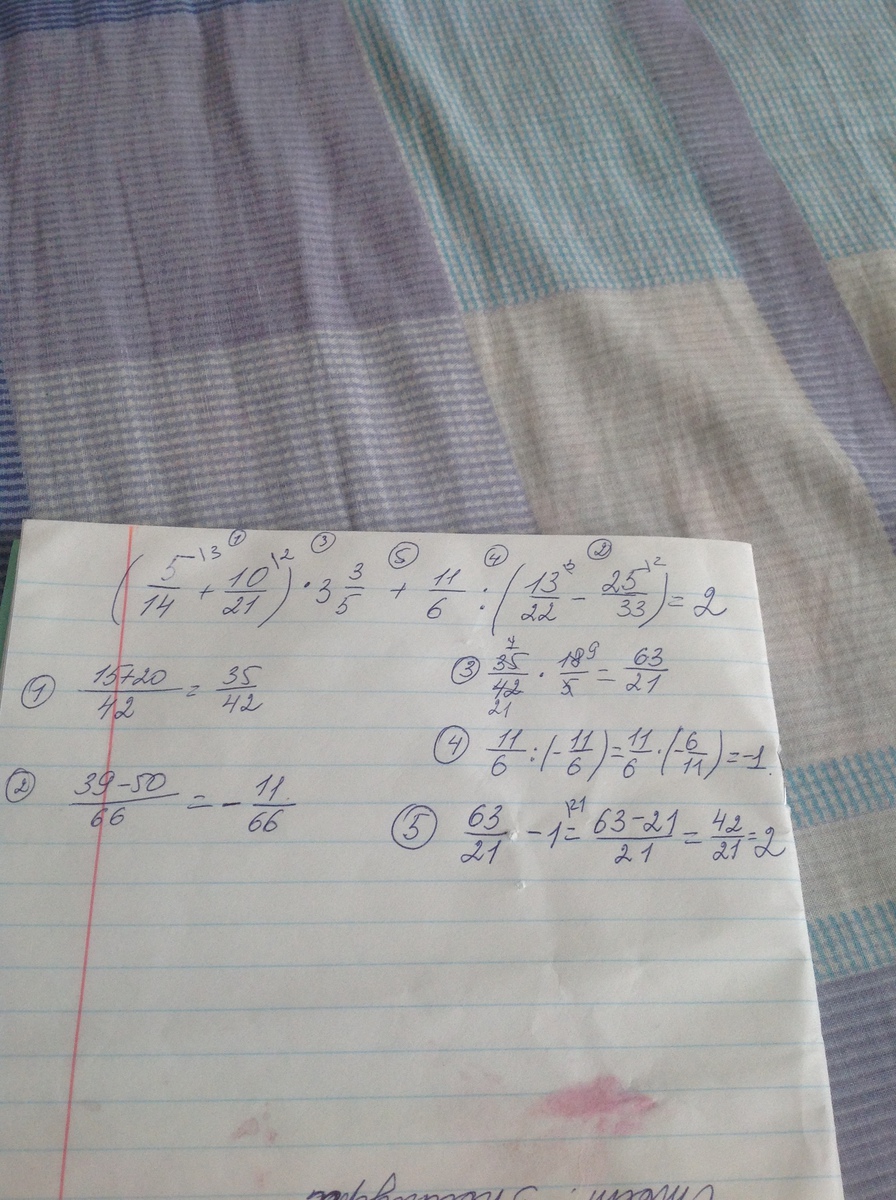 (5/14\3 + 10/21\2) · 3 3/5 + 11/6 : (13/22\3 − 25/33\2) = 2
① ③ ⑤ ④ ②
① (15+20)/42 = 35/42
② (39−50)/66 = −11/66
③ 35/42 · 18/5 = 63/21
7 9
21
④ 11/6 : (−11/6) = 11/6 · (−6/11) = −1.
⑤ 63/21 − 1\21 = (63−21)/21 = 42/21 = 2